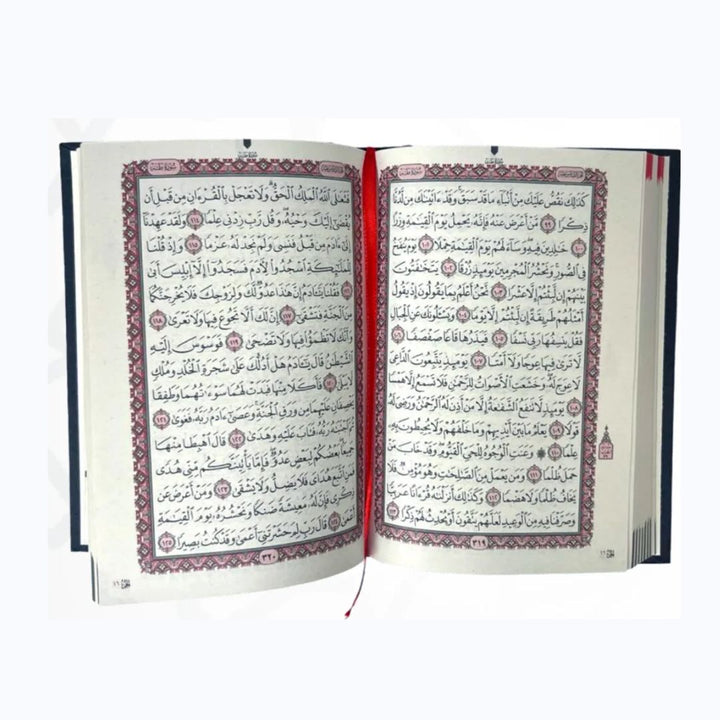 سورة طه
كَذَٰلِكَ نَقُصُّ عَلَيْكَ مِنْ أَنۢبَآءِ مَا قَدْ سَبَقَ ۚ وَقَدْ ءَاتَيْنَٰكَ مِن لَّدُنَّا
ذِكْرًا ٩٩ مَّنْ أَعْرَضَ عَنْهُ فَإِنَّهُۥ يَحْمِلُ يَوْمَ ٱلْقِيَٰمَةِ وِزْرًا
١٠٠ خَٰلِدِينَ فِيهِ ۖ وَسَآءَ لَهُمْ يَوْمَ ٱلْقِيَٰمَةِ حِمْلًا ١٠١ يَوْمَ يُنفَخُ
فِى ٱلصُّورِ ۚ وَنَحْشُرُ ٱلْمُجْرِمِينَ يَوْمَئِذٍ زُرْقًا ١٠٢ يَتَخَٰفَتُونَ
بَيْنَهُمْ إِن لَّبِثْتُمْ إِلَّا عَشْرًا ١٠٣ نَّحْنُ أَعْلَمُ بِمَا يَقُولُونَ إِذْ يَقُولُ
أَمْثَلُهُمْ طَرِيقَةً إِن لَّبِثْتُمْ إِلَّا يَوْمًا ١٠٤ وَيَسْـَٔلُونَكَ عَنِ ٱلْجِبَالِ
فَقُلْ يَنسِفُهَا رَبِّى نَسْفًا ١٠٥ فَيَذَرُهَا قَاعًا صَفْصَفًا ١٠٦
لَّا تَرَىٰ فِيهَا عِوَجًا وَلَآ أَمْتًا ١٠٧ يَوْمَئِذٍ يَتَّبِعُونَ ٱلدَّاعِىَ
لَا عِوَجَ لَهُۥ ۖ وَخَشَعَتِ ٱلْأَصْوَاتُ لِلرَّحْمَٰنِ فَلَا تَسْمَعُ إِلَّا هَمْسًا
١٠٨ يَوْمَئِذٍ لَّا تَنفَعُ ٱلشَّفَٰعَةُ إِلَّا مَنْ أَذِنَ لَهُ ٱلرَّحْمَٰنُ وَرَضِىَ لَهُۥ
قَوْلًا ١٠٩ يَعْلَمُ مَا بَيْنَ أَيْدِيهِمْ وَمَا خَلْفَهُمْ وَلَا يُحِيطُونَ بِهِۦ
عِلْمًا ١١٠ ۞ وَعَنَتِ ٱلْوُجُوهُ لِلْحَىِّ ٱلْقَيُّومِ ۖ وَقَدْ خَابَ مَنْ
حَمَلَ ظُلْمًا ١١١ وَمَن يَعْمَلْ مِنَ ٱلصَّٰلِحَٰتِ وَهُوَ مُؤْمِنٌ فَلَا
يَخَافُ ظُلْمًا وَلَا هَضْمًا ١١٢ وَكَذَٰلِكَ أَنزَلْنَٰهُ قُرْءَانًا عَرَبِيًّا
وَصَرَّفْنَا فِيهِ مِنَ ٱلْوَعِيدِ لَعَلَّهُمْ يَتَّقُونَ أَوْ يُحْدِثُ لَهُمْ ذِكْرًا ١١٣
٣١٩
سورة طه
فَتَعَٰلَى ٱللَّهُ ٱلْمَلِكُ ٱلْحَقُّ ۗ وَلَا تَعْجَلْ بِٱلْقُرْءَانِ مِن قَبْلِ أَن
يُقْضَىٰٓ إِلَيْكَ وَحْيُهُۥ ۖ وَقُل رَّبِّ زِدْنِى عِلْمًا ١١٤ وَلَقَدْ عَهِدْنَآ
إِلَىٰٓ ءَادَمَ مِن قَبْلُ فَنَسِىَ وَلَمْ نَجِدْ لَهُۥ عَزْمًا ١١٥ وَإِذْ قُلْنَا
لِلْمَلَٰٓئِكَةِ ٱسْجُدُوا۟ لِـَٔادَمَ فَسَجَدُوٓا۟ إِلَّآ إِبْلِيسَ أَبَىٰ
١١٦ فَقُلْنَا يَٰٓـَٔادَمُ إِنَّ هَٰذَا عَدُوٌّ لَّكَ وَلِزَوْجِكَ فَلَا يُخْرِجَنَّكُمَا
مِنَ ٱلْجَنَّةِ فَتَشْقَىٰٓ ١١٧ إِنَّ لَكَ أَلَّا تَجُوعَ فِيهَا وَلَا تَعْرَىٰ ١١٨
وَأَنَّكَ لَا تَظْمَؤُا۟ فِيهَا وَلَا تَضْحَىٰ ١١٩ فَوَسْوَسَ إِلَيْهِ
ٱلشَّيْطَٰنُ قَالَ يَٰٓـَٔادَمُ هَلْ أَدُلُّكَ عَلَىٰ شَجَرَةِ ٱلْخُلْدِ وَمُلْكٍ
لَّا يَبْلَىٰ ١٢٠ فَأَكَلَا مِنْهَا فَبَدَتْ لَهُمَا سَوْءَٰتُهُمَا وَطَفِقَا
يَخْصِفَانِ عَلَيْهِمَا مِن وَرَقِ ٱلْجَنَّةِ ۚ وَعَصَىٰٓ ءَادَمُ رَبَّهُۥ فَغَوَىٰ
١٢١ ثُمَّ ٱجْتَبَٰهُ رَبُّهُۥ فَتَابَ عَلَيْهِ وَهَدَىٰ ١٢٢ قَالَ ٱهْبِطَا مِنْهَا
جَمِيعًۢا ۖ بَعْضُكُمْ لِبَعْضٍ عَدُوٌّ ۖ فَإِمَّا يَأْتِيَنَّكُم مِّنِّى هُدًى
فَمَنِ ٱتَّبَعَ هُدَاىَ فَلَا يَضِلُّ وَلَا يَشْقَىٰ ١٢٣ وَمَنْ أَعْرَضَ عَن
ذِكْرِى فَإِنَّ لَهُۥ مَعِيشَةً ضَنكًا وَنَحْشُرُهُۥ يَوْمَ ٱلْقِيَٰمَةِ
أَعْمَىٰ ١٢٤ قَالَ رَبِّ لِمَ حَشَرْتَنِىٓ أَعْمَىٰ وَقَدْ كُنتُ بَصِيرًا ١٢٥
٣٢٠